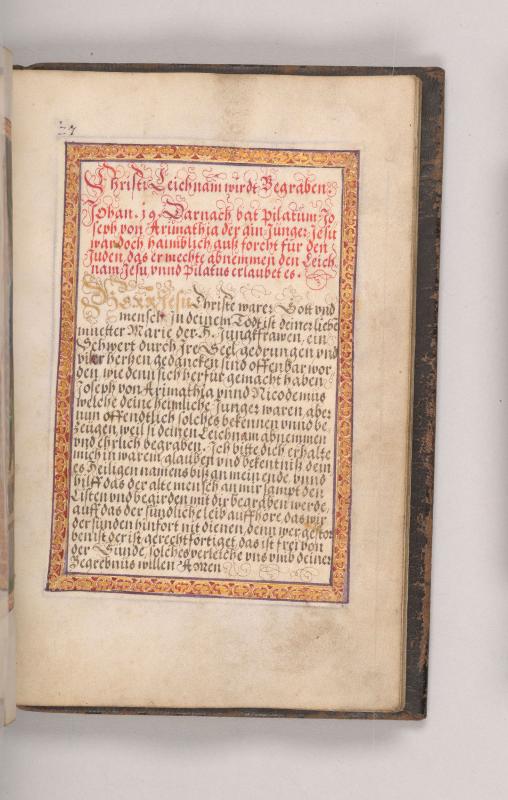 27
Christi Leichnam wirdt Begraben.
Johan. 19. Darnach bat Pilatum Jo
seph von Arimathia der ain Junger Jesu
war doch haimblich auß forcht für den
Juden, das er mechte abnemmen den Leich
nam Jesu vnnd Pilatus erlaubet es.
Herr Jesu Christe warer Gott vnd
mensch In deinem Todt ist deiner liebe
muetter Marie der H. Jungkfrawen, ein
Schwert durch Jre Seel gedrungen vnd
viler hertzen gedancken sind offenbar wor
den, wie denn sich herfür gemacht haben
Joseph von Arimathia vnnd Nicodemus
welche deine heimliche Junger waren aber
nun offendtlich solches bekennen vnnd be
zeugen, weil si deinen Leichnam abnemmen
vnd ehrlich begraben. Ich bitte dich erhalte
mich in warem glauben vnd bekentnis dein
es Heiligen namens biß an mein ende, vnnd
hilff das der alte mensch an mir sampt den
Listen vnd begirden mit dir begraben werde,
auff das der sündliche leib auffhöre, das wir
der sünden hinfort nit dienen, denn wer gestor
ben ist der ist gerechtfortiget, das ist frei von
der Sünde, solches verleihe vns vmb deiner
Begrebnus willen Amen